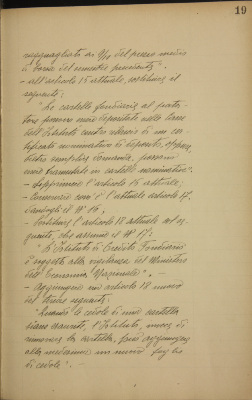 19
ragguagliato ai 9/10 del prezzo medio
di borsa del semestre precedente".
- all'articolo 15 attuale, sostituire il
seguente:
"Le cartelle fondiarie al porta-
tore possono essere depositate nelle casse
dell'Istituto contro rilascio di un cer-
tificato nominativo di deposito, oppure,
dietro semplice domanda, possono
essere tramutate in cartelle nominative".
- Sopprimere l'articolo 16 attuale;
- Conservare com'è l'attuale articolo 17,
dandogli il Nº 16;
- Sostituire l'articolo 18 attuale col se-
guente, che assume il Nº 17:
"L'Istituto di Credito Fondiario
è soggetto alla vigilanza del Ministero
dell'Economia Nazionale". -
- Aggiungere un articolo 18 nuovo
del tenore seguente:
"Quando le cedole di una cartella
siano esaurite, l'Istituto, invece di
rinnovare la cartella, può aggiungere
alla medesima un nuovo foglio
di cedole". -